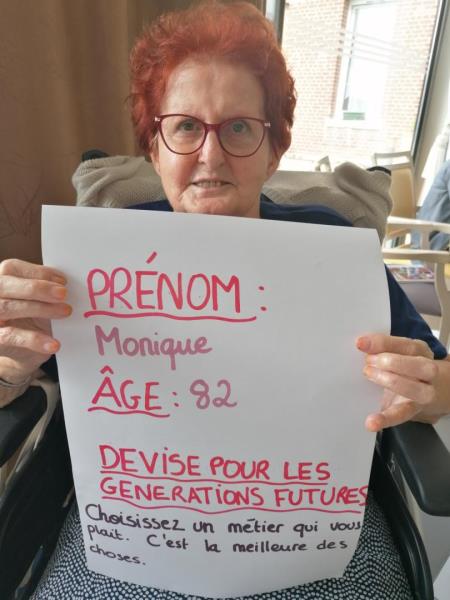 PRÉNOM :
Monique
ÂGE : 82
DEVISE POUR LES
GENERATIONS FUTURES
Choisissez un métier qui vous
plait. C'est la meilleure des
choses.